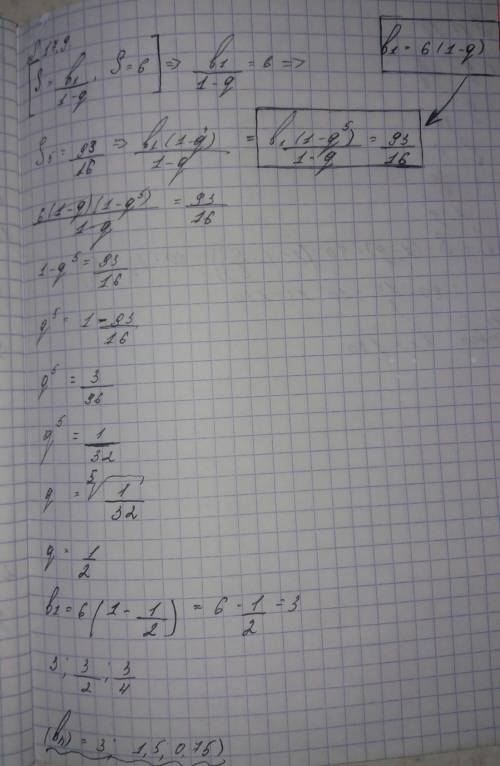 17.9
[S = b₁/(1-q), S = 6] => b₁/(1-q) = 6 =>
b₁ = 6(1-q)
S₅ = 93/16 => b₁(1-q)/(1-q) = b₁(1-q⁵)/(1-q) = 93/16
6(1-q)(1-q⁵)/(1-q) = 93/16
1-q⁵ = 93/16
q⁵ = 1 - 93/16
q⁵ = 3/96
q⁵ = 1/32
q = ⁵√(1/32)
q = 1/2
b₁ = 6(1 - 1/2) = 6 · 1/2 = 3
3; 3/2; 3/4
(bₙ) = 3; 1,5, 0,75)